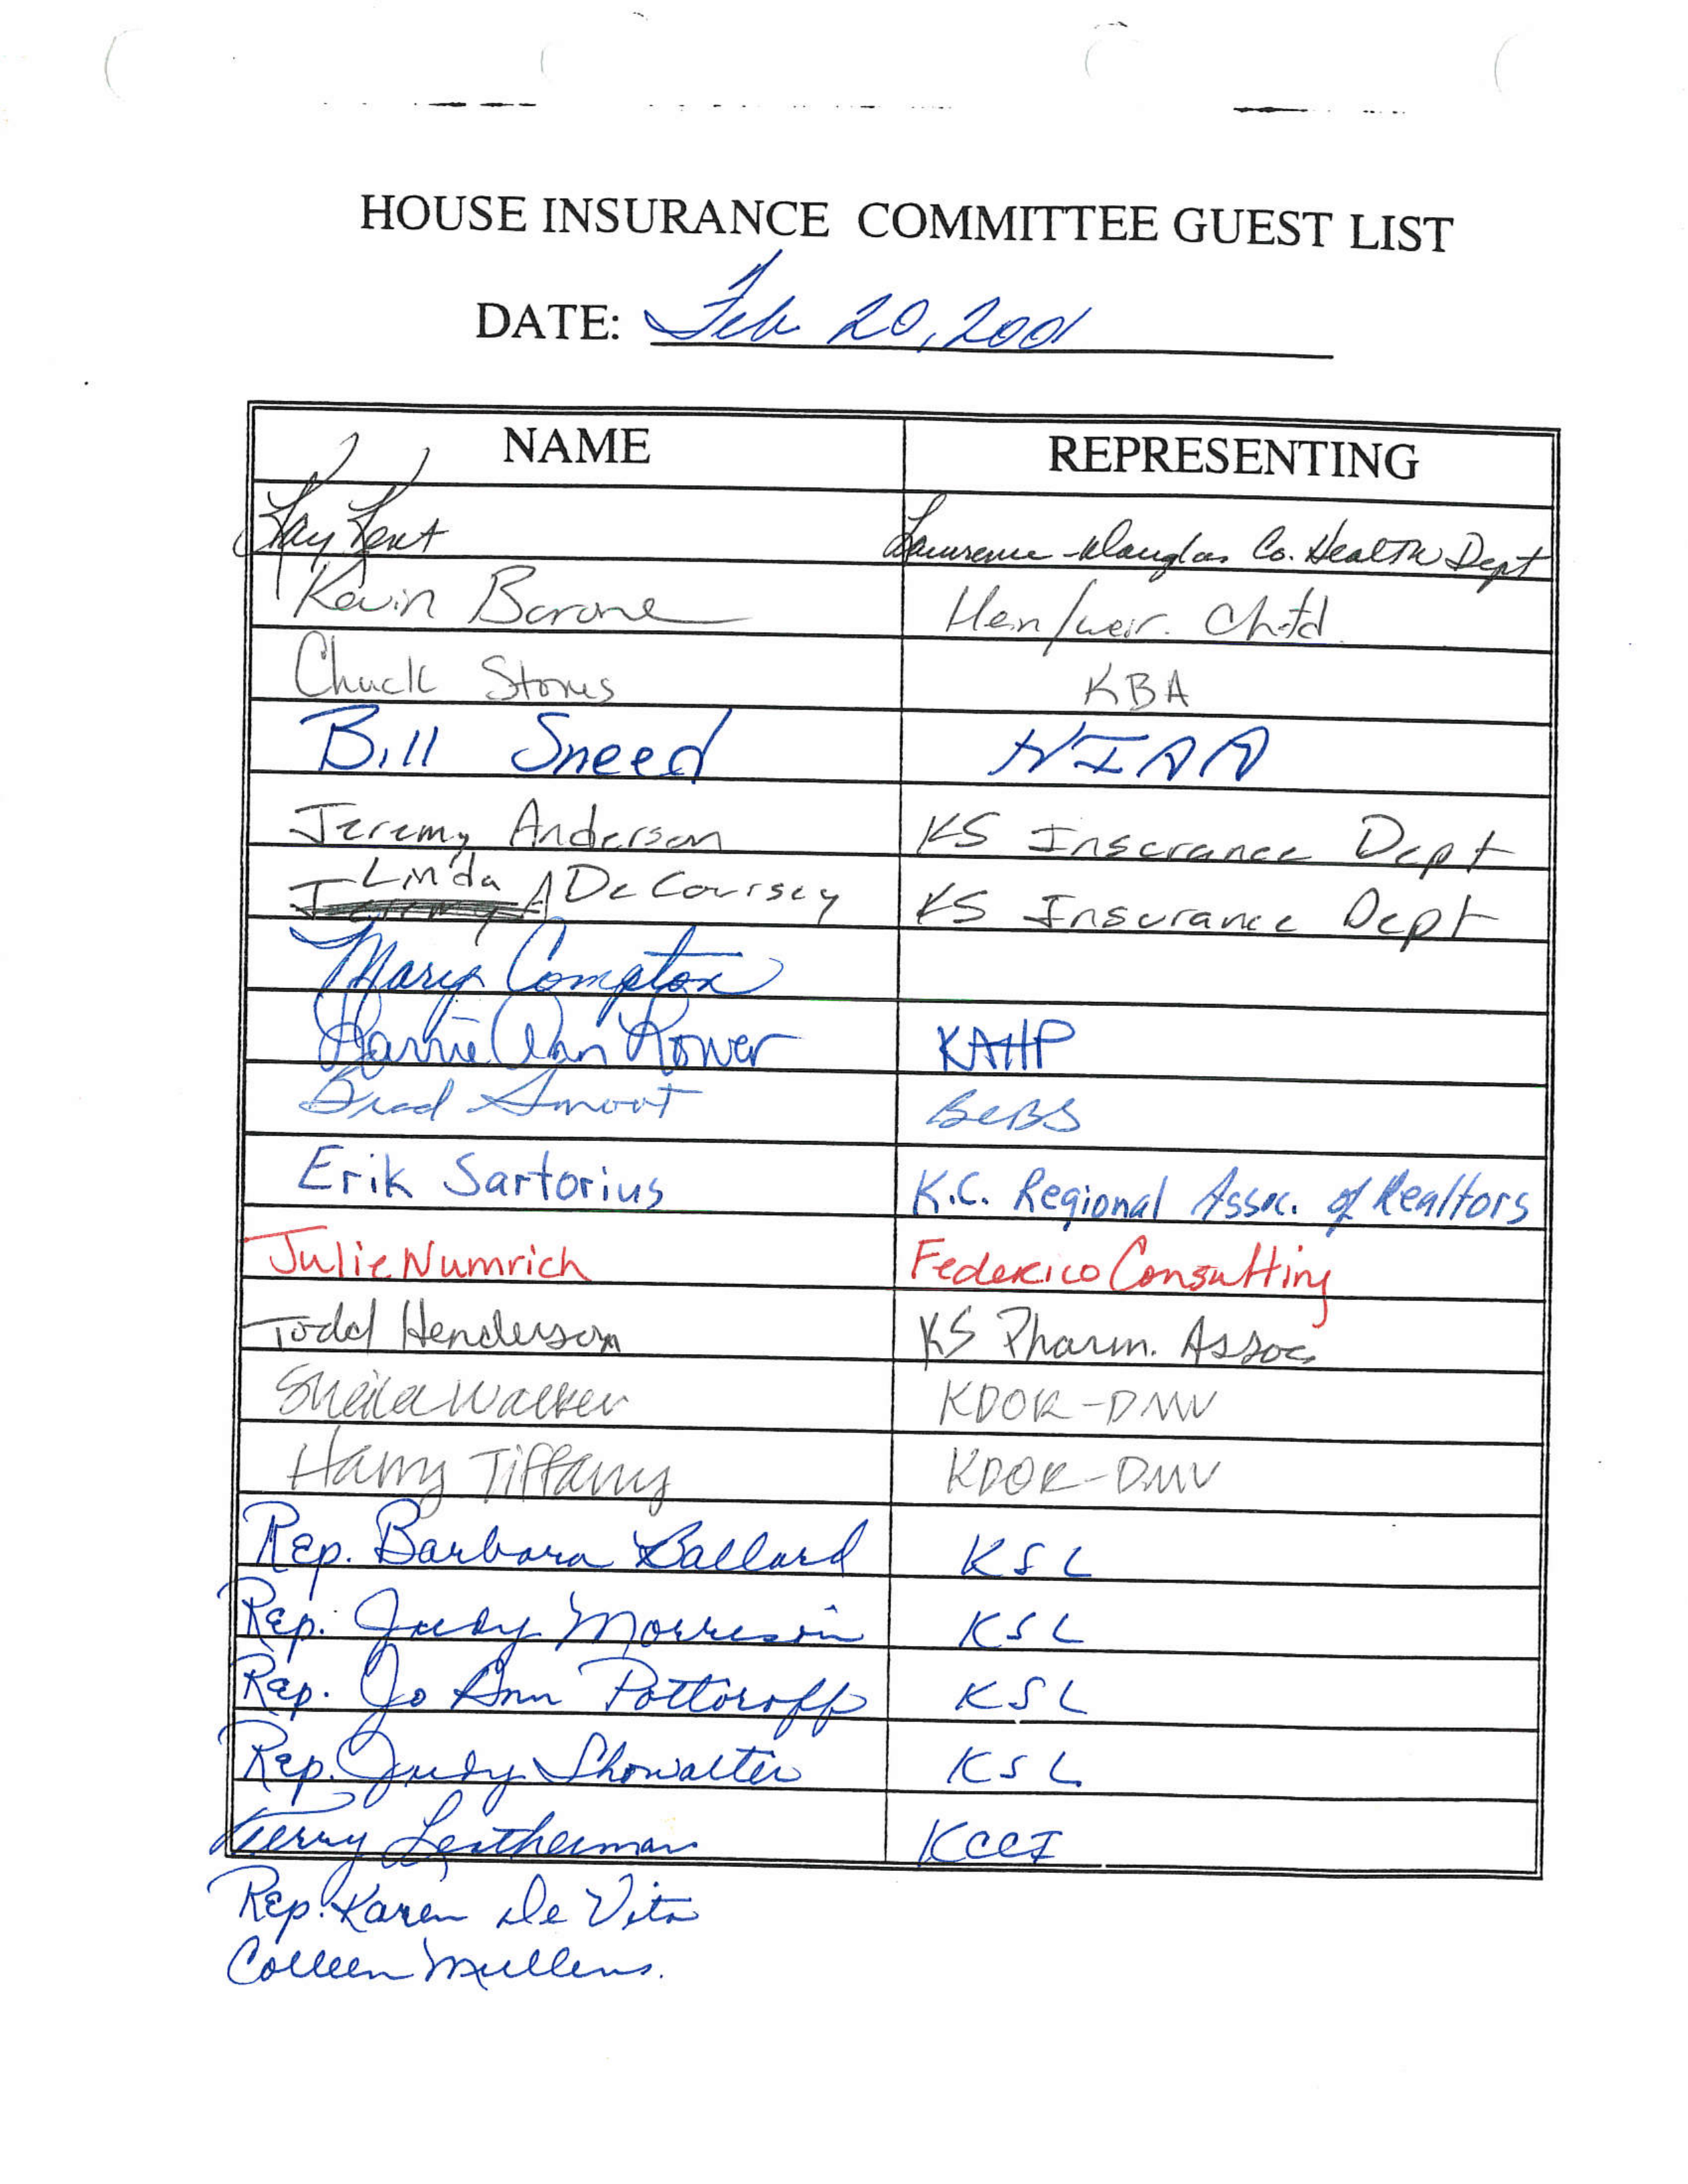 HOUSE INSURANCE COMMITTEE GUEST LIST
DATE: Feb 20, 2001
NAME REPRESENTING
Kay Kent Lawrence-Douglas Co. Health Dept
Kevin Barone Hein/Weir. Chtd.
Chuck Stones KBA
Bill Sneed HIAA
Jeremy Anderson KS Insurance Dept
Linda De Coursey KS Insurance Dept
Mary Compton
Ann KAHP
Brad Smoot BCBS
Erik Sartorius K.C. Regional Assoc. of Realtors
Julie Numrich Federico Consulting
Todd Henderson KS Pharm. Assoc
Sheila Walker KDOR-DMV
Harry Tiffany KDOR-DMV
Rep. Barbara Ballard KSL
Rep. Judy Morrison KSL
Rep. Jo Ann Pottoroff KSL
Rep. Judy Showalter KSL
Terry Leatherman KCCI
Rep. Karen De Vita
Colleen Mullens.